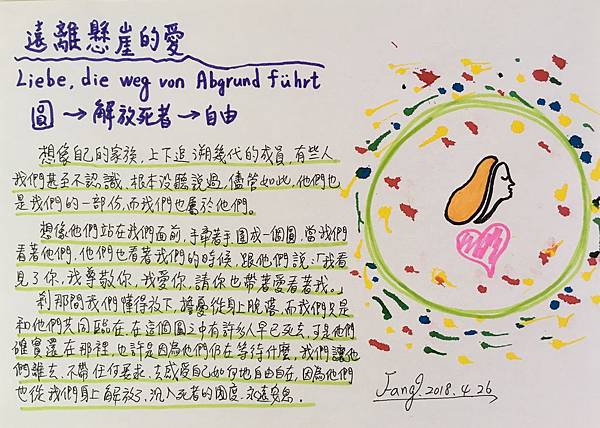 遠離懸崖的愛
Liebe, die weg von Abgrund führt
圓→解放死者→自由
想像自己的家族,上下追溯幾代的成員,有些人
我們甚至不認識、根本沒聽說過,儘管如此,他們也
是我們的一部份,而我們也屬於他們。
想像他們站在我們面前,手牽著手,圍成一個圓,當我們
看著他們,他們也看著我們的時候,跟他們說:「我看
見了你,我尊敬你,我愛你,請你也帶著愛看著我。」
剎那間我們懂得放下,擔憂從身上脫落,而我們只是
和他們共同臨在,在這個圓之中有許多人早已死去,可是他們
確實還在那裡,也許是因為他們仍在等待什麼,我們讓他
們離去、不帶任何要求、去感受自己如何地自由自在,因為他們
也從我們身上解放了,沉入死者的國度、永遠安息。
Fang. 2018.4.26